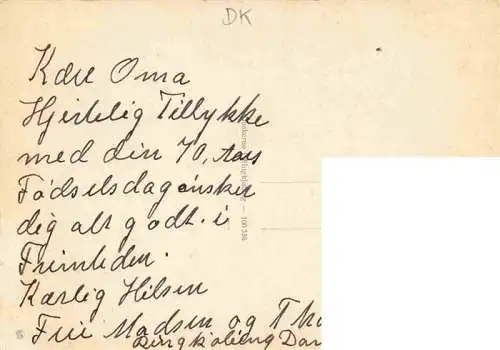 DK
Kære Oma
Hjertelig Tillykke
med din 70, Aars
Fødselsdag ønsker
dig alt godt. i
Fremtiden.
Kærlig Hilsen
Madsen og
Ringkøbing Dan
100 586